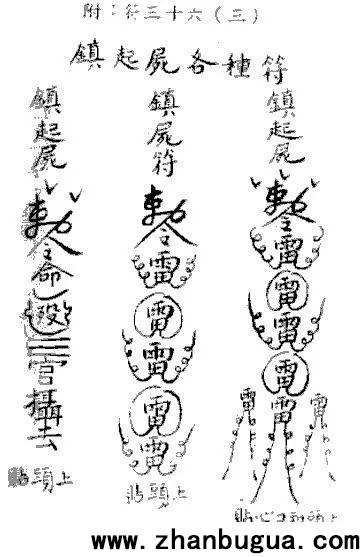 附：符三十六（三）
鎮起屍各種符
鎮起屍
勅令雷雷雷雷雷
雷
雷
貼心口頭上
鎮屍符
勅令雷雷雷雷雷
貼頭上
鎮起屍
勅令命三官攝去
貼頭上
www.zhanbugua.com